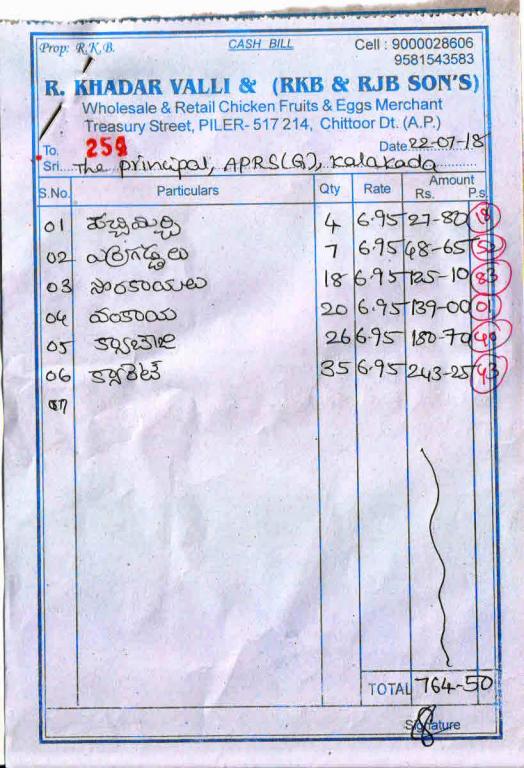 Prop: R.K.B. CASH BILL Cell : 9000028606
9581543583
R. KHADAR VALLI & (RKB & RJB SON'S)
Wholesale & Retail Chicken Fruits & Eggs Merchant
Treasury Street, PILER- 517 214, Chittoor Dt. (A.P.)
To. 259 Date 22-07-18
Sri... The principal, APRS(G), Kalakada
S.No. Particulars Qty Rate Amount
Rs. P.s.
01 పచ్చిమిర్చి 4 6.95 27-80 18
02 ఎర్రగడ్డలు 7 6.95 48-65 52
03 సొరకాయలు 18 6.95 125-10 83
04 వంకాయ 20 6.95 139-00 01
05 క్యాబేజి 26 6.95 180-70 40
06 క్యారెట్ 35 6.95 243-25 43
07
TOTAL 764-50
Signature